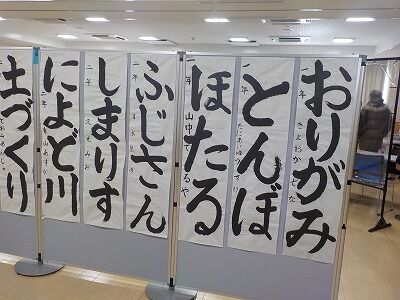 おりがみ
一年
とんぼ
一年
ほたる
一年 山中
ふじさん
二年
しまりす
二年
によど川
二年
土づくり